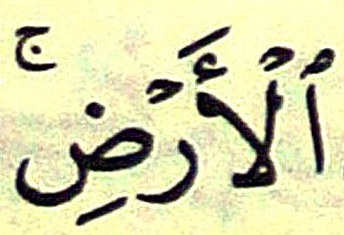 ٱلْأَرْضِ ۚ